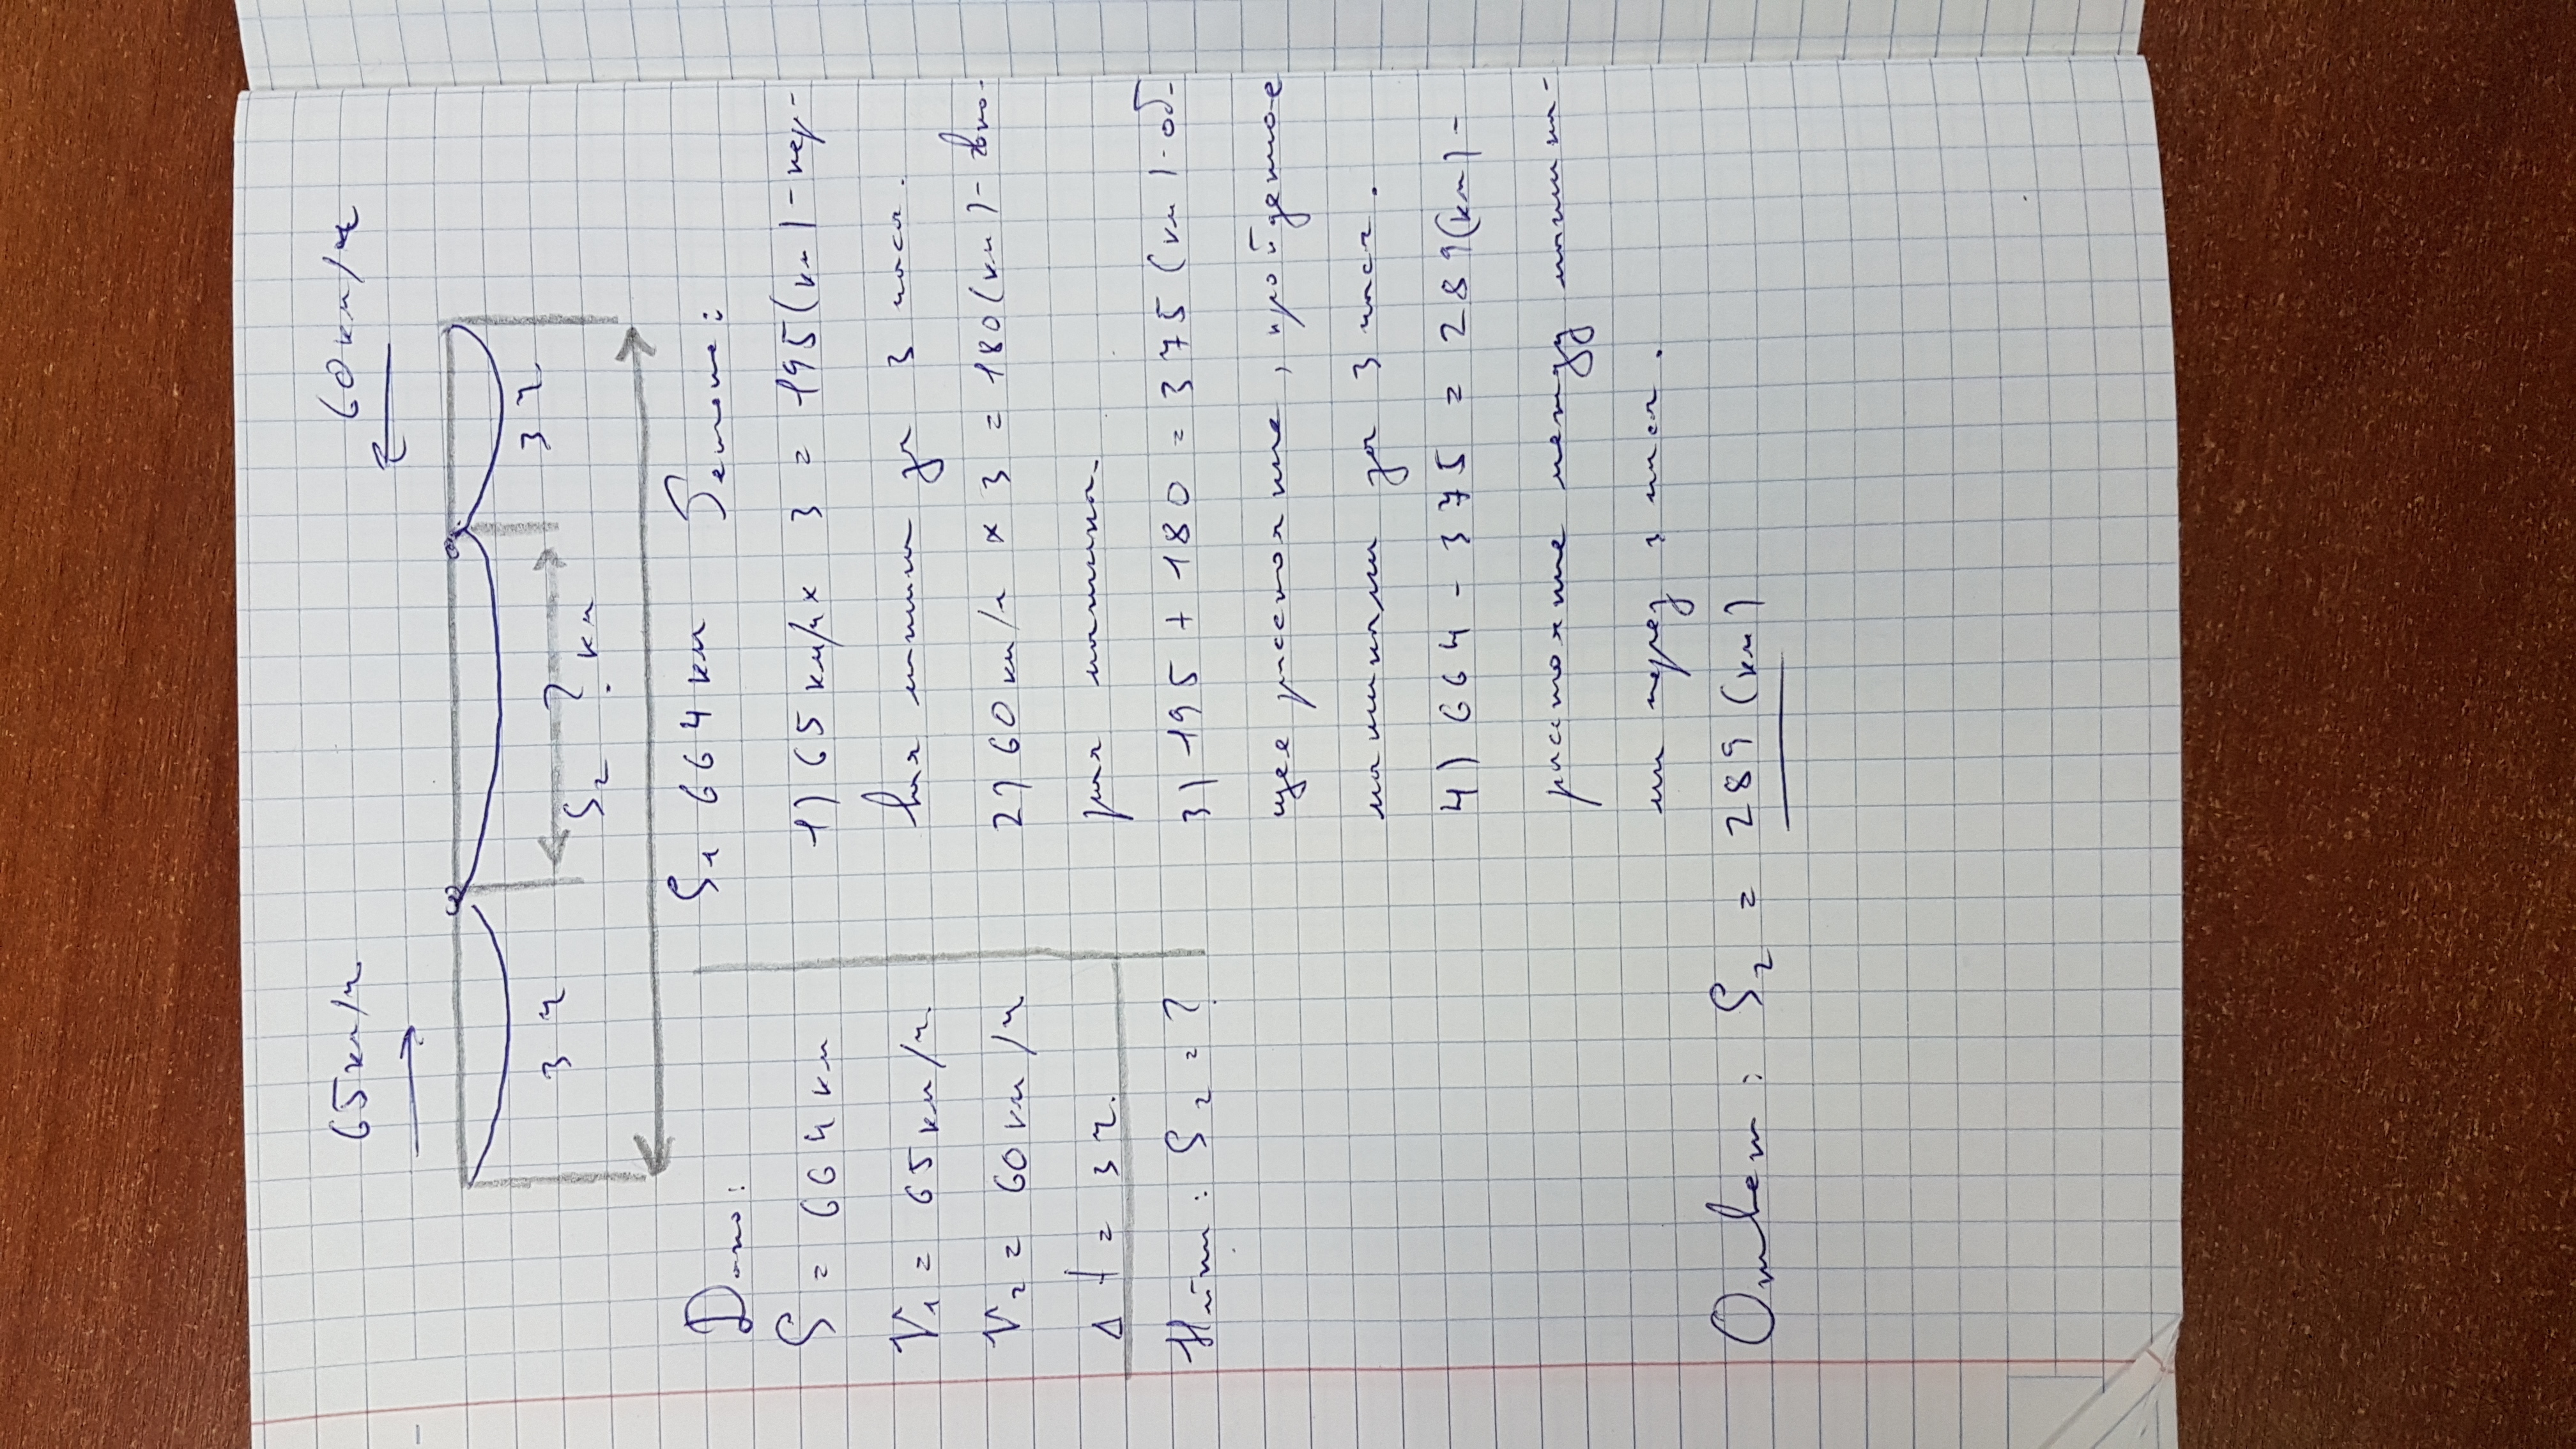 65км/ч 60км/ч
3 ч 3 ч
S₂ ? км
S₁ 664 км
Дано: Решение:
S = 664 км
V₁ = 65 км/ч.
V₂ = 60 км/ч
Δt = 3 ч.
Найти: S₂ = ?
1) 65 км/ч x 3 = 195 (км) - пер-
вая машина за 3 часа.
2) 60 км/ч x 3 = 180 (км) - вто-
рая машина.
3) 195 + 180 = 375 (км) - об-
щее расстояние, пройденное
машинами за 3 часа.
4) 664 - 375 = 289 (км) -
расстояние между машина-
ми через 3 часа.
Ответ: S₂ = 289 (км)